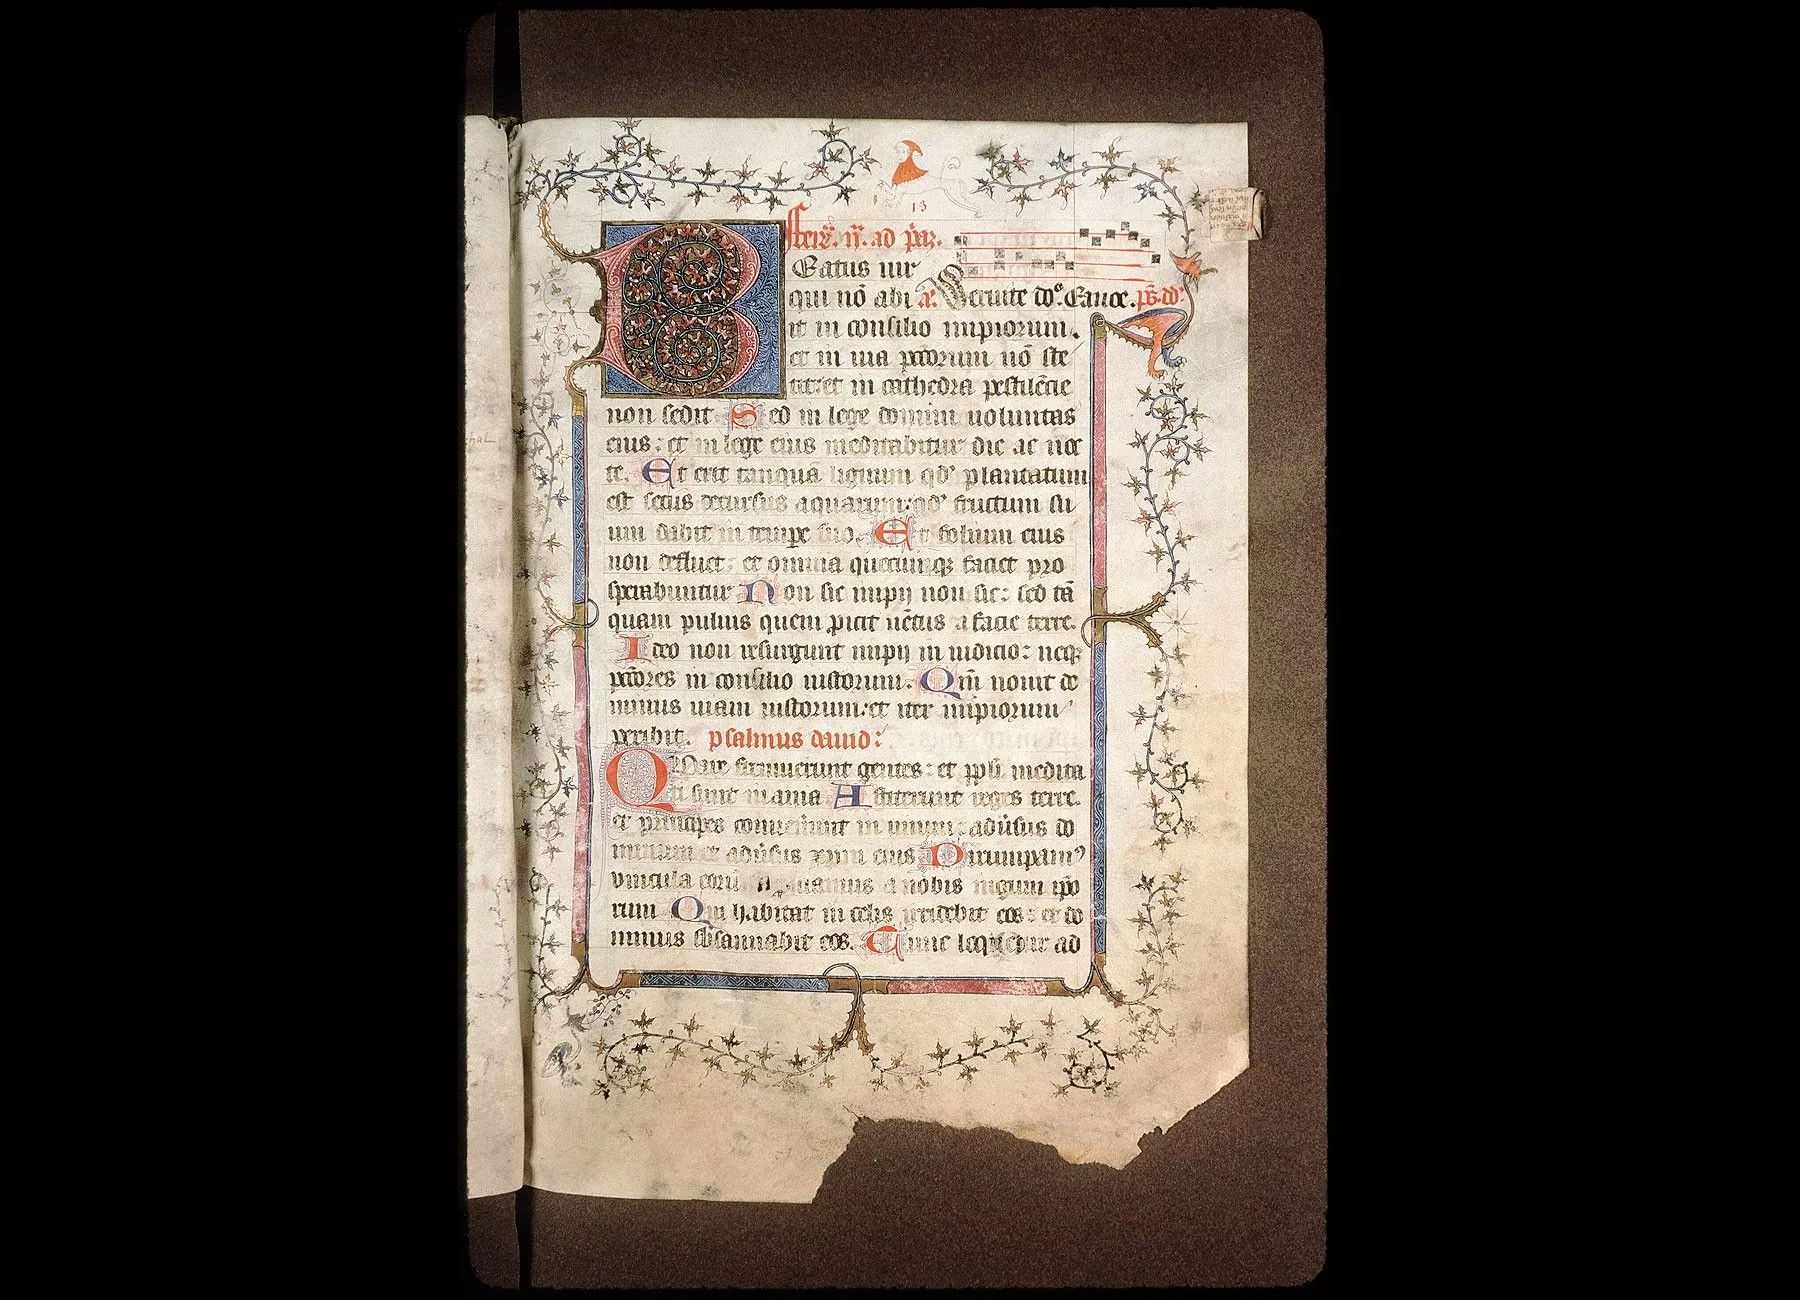 13
ad
Beatus uir
qui nō abi a. Seruite do. Euouae. ps. dd.
it in consilio impiorum.
et in uia pctorum nō ste
tit: et in cathedra pestilēcie
non sedit. Sed in lege domini uoluntas
eius: et in lege eius meditabitur die ac noc
te. Et erit tanquā lignum qd plantatum
est secus decursus aquarum: qd fructum su
um dabit in tempe suo. Et folium eius
non defluet: et omnia quecunqȝ faciet pro
sperabuntur Non sic impij non sic: sed tā
quam puluis quem proicit uētus a facie terre.
Ideo non resurgunt impij in iudicio: neqȝ
pctores in consilio iustorum. Qm̄ nouit do
minus uiam iustorum: et iter impiorum
peribit. psalmus dauid:
Quare fremuerunt gentes: et ppli medita
ti sunt inania Astiterunt reges terre.
et principes conuenerunt in unum: aduſus do
minum et aduſus xpm eius Dirumpamꝰ
vincula eorū a nobis iugum ipo
rum Qui habitat in celis irridebit eos: et do
minus sbsannabit eos. Tunc loquetur ad